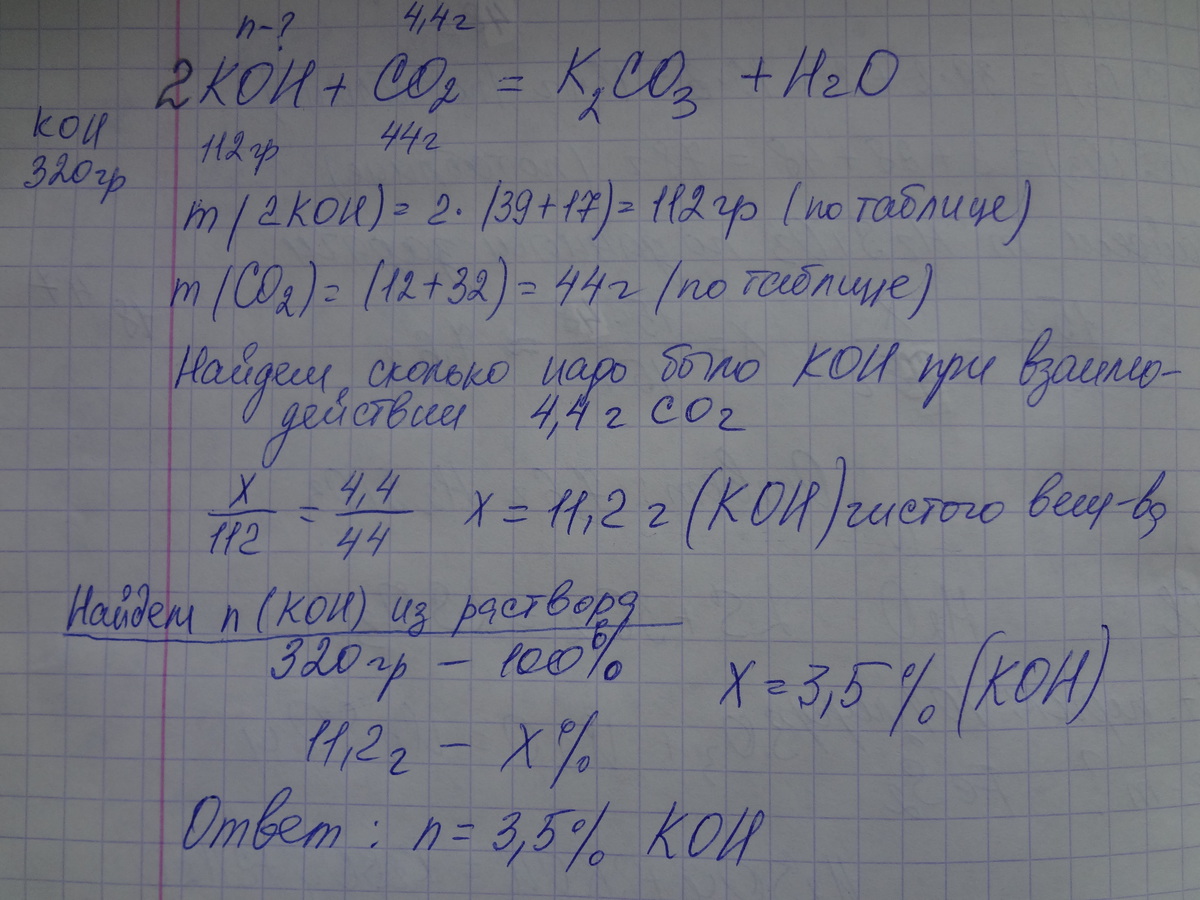 n-? 4,4г
2KOH + CO2 = K2CO3 + H2O
KOH
320гр
112гр 44г
m(2KOH) = 2·(39+17) = 112гр (по таблице)
m(CO2) = (12+32) = 44г (по таблице)
Найдем сколько надо было KOH при взаимо-
действии 4,4г CO2
x/112 = 4,4/44 x = 11,2г (KOH) чистого вещ-ва
Найдем n(KOH) из раствора
320гр – 100% x = 3,5% (KOH)
11,2г – x%
Ответ: n = 3,5% KOH